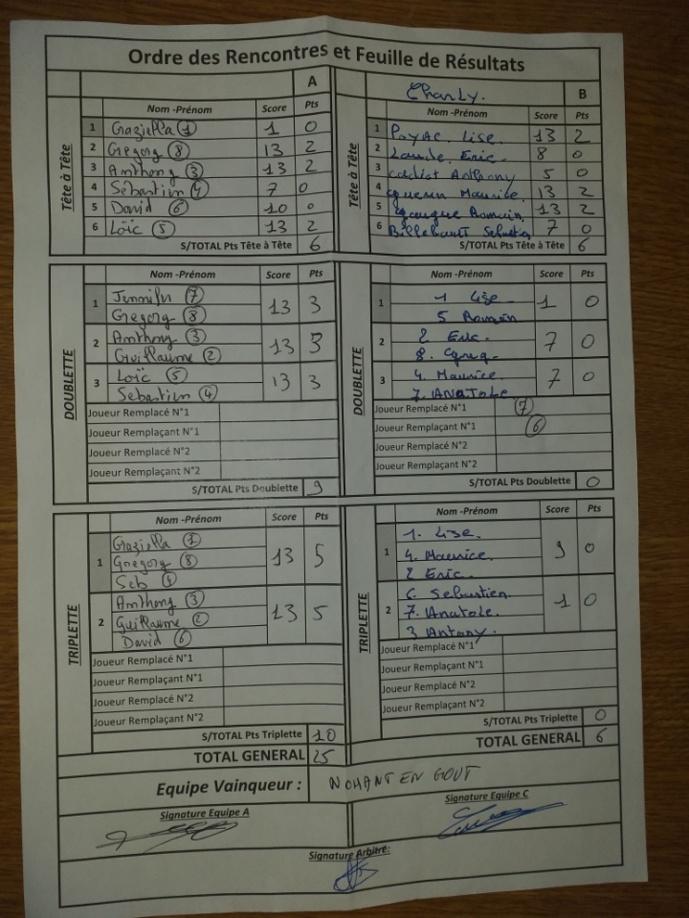 Ordre des Rencontres et Feuille de Résultats
A
Charly. B
Tête à Tête
Nom -Prénom Score Pts
1 Graziella ① 1 0
2 Gregory ⑧ 13 2
3 Anthony ③ 13 2
4 Sébastien ④ 7 0
5 David ⑥ 10 0
6 Loïc ⑤ 13 2
S/TOTAL Pts Tête à Tête 6
Tête à Tête
Nom -Prénom Score Pts
1 Lise 13 2
2 Eric 8 0
3 Anthony 5 0
4 Maurice 13 2
5 Romain 13 2
6 Sebastien 7 0
S/TOTAL Pts Tête à Tête 6
DOUBLETTE
Nom -Prénom Score Pts
1 Jennifer ⑦ 13 3
Gregory ⑧
2 Anthony ③ 13 3
Guillaume ②
3 Loïc ⑤ 13 3
Sebastien ④
Joueur Remplacé N°1
Joueur Remplaçant N°1
Joueur Remplacé N°2
Joueur Remplaçant N°2
S/TOTAL Pts Doublette 9
DOUBLETTE
Nom -Prénom Score Pts
1 1 Lise 1 0
5 Romain
2 2 Eric. 7 0
8. Greg.
3 4. Maurice 7 0
7. ANATOLE
Joueur Remplacé N°1 ⑦
Joueur Remplaçant N°1 ⑥
Joueur Remplacé N°2
Joueur Remplaçant N°2
S/TOTAL Pts Doublette 0
TRIPLETTE
Nom -Prénom Score Pts
1 Graziella ① 13 5
Gregory ⑧
Seb ④
2 Anthony ③ 13 5
Guillaume ②
David ⑥
Joueur Remplacé N°1
Joueur Remplaçant N°1
Joueur Remplacé N°2
Joueur Remplaçant N°2
S/TOTAL Pts Triplette 10
TOTAL GENERAL 25
TRIPLETTE
Nom -Prénom Score Pts
1 1. Lise. 9 0
4. Maurice.
2 Eric.
2 6. Sebastien. 1 0
7. Anatole.
3 Antony.
Joueur Remplacé N°1
Joueur Remplaçant N°1
Joueur Remplacé N°2
Joueur Remplaçant N°2
S/TOTAL Pts Triplette 0
TOTAL GENERAL 6
Equipe Vainqueur : NOHANT EN GOUT
Signature Equipe A
Signature Equipe C
Signature Arbitre: